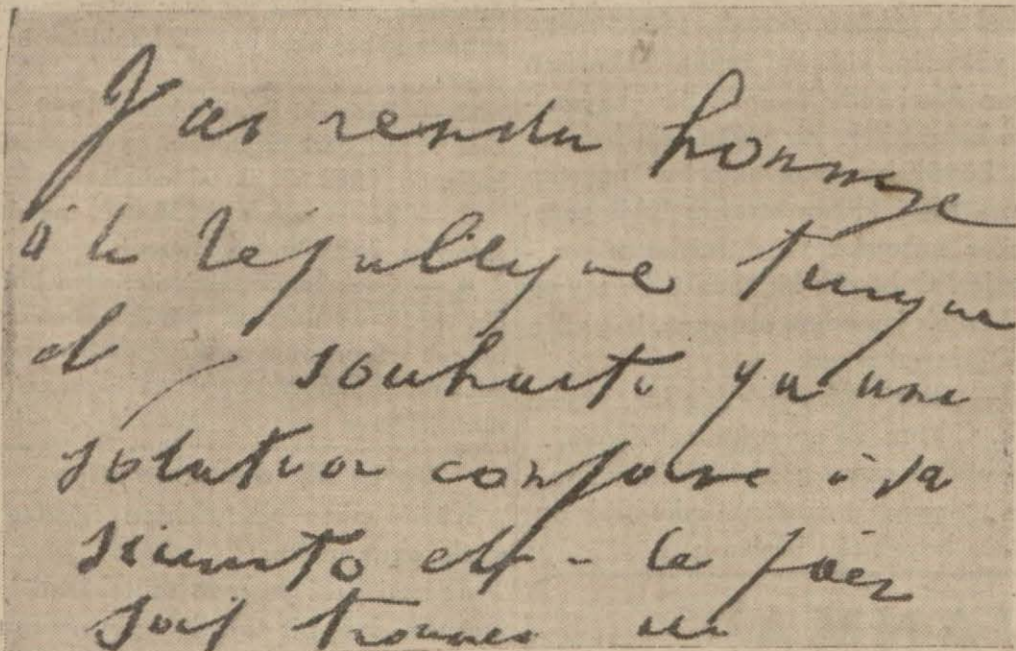 J'ai rendu hommage
à la République turque
et je souhaite qu'une
solution conforme à sa
sécurité et à la paix
soit trouvée